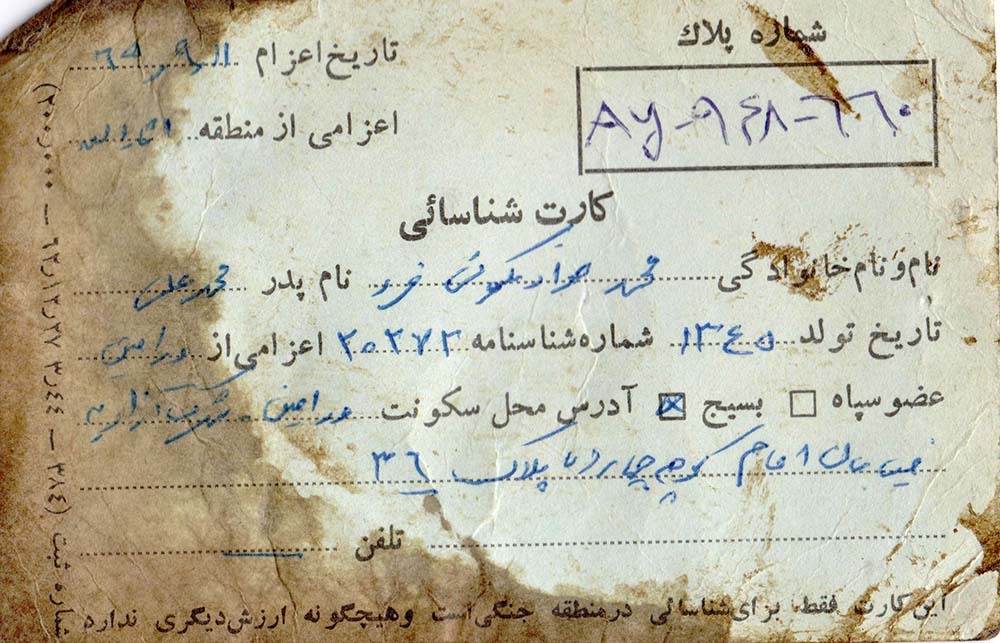 شماره پلاك
AY-۹۴۸-۶۶۰
تاریخ اعزام ۶۴
اعزامی از منطقه
کارت شناسائی
نام و نام خانوادگی محمد جواد نام پدر محمد علی
تاریخ تولد ۱۳۴۵ شماره شناسنامه ۲۰۲۷۳ اعزامی از ورامین
عضو سپاه بسیج آدرس محل سکونت ورامین شهرک
خیابان امام کوچه پلاک ۳۶
تلفن
این کارت فقط برای شناسائی در منطقه جنگی است وهیچگونه ارزش دیگری ندارد
شماره ثبت